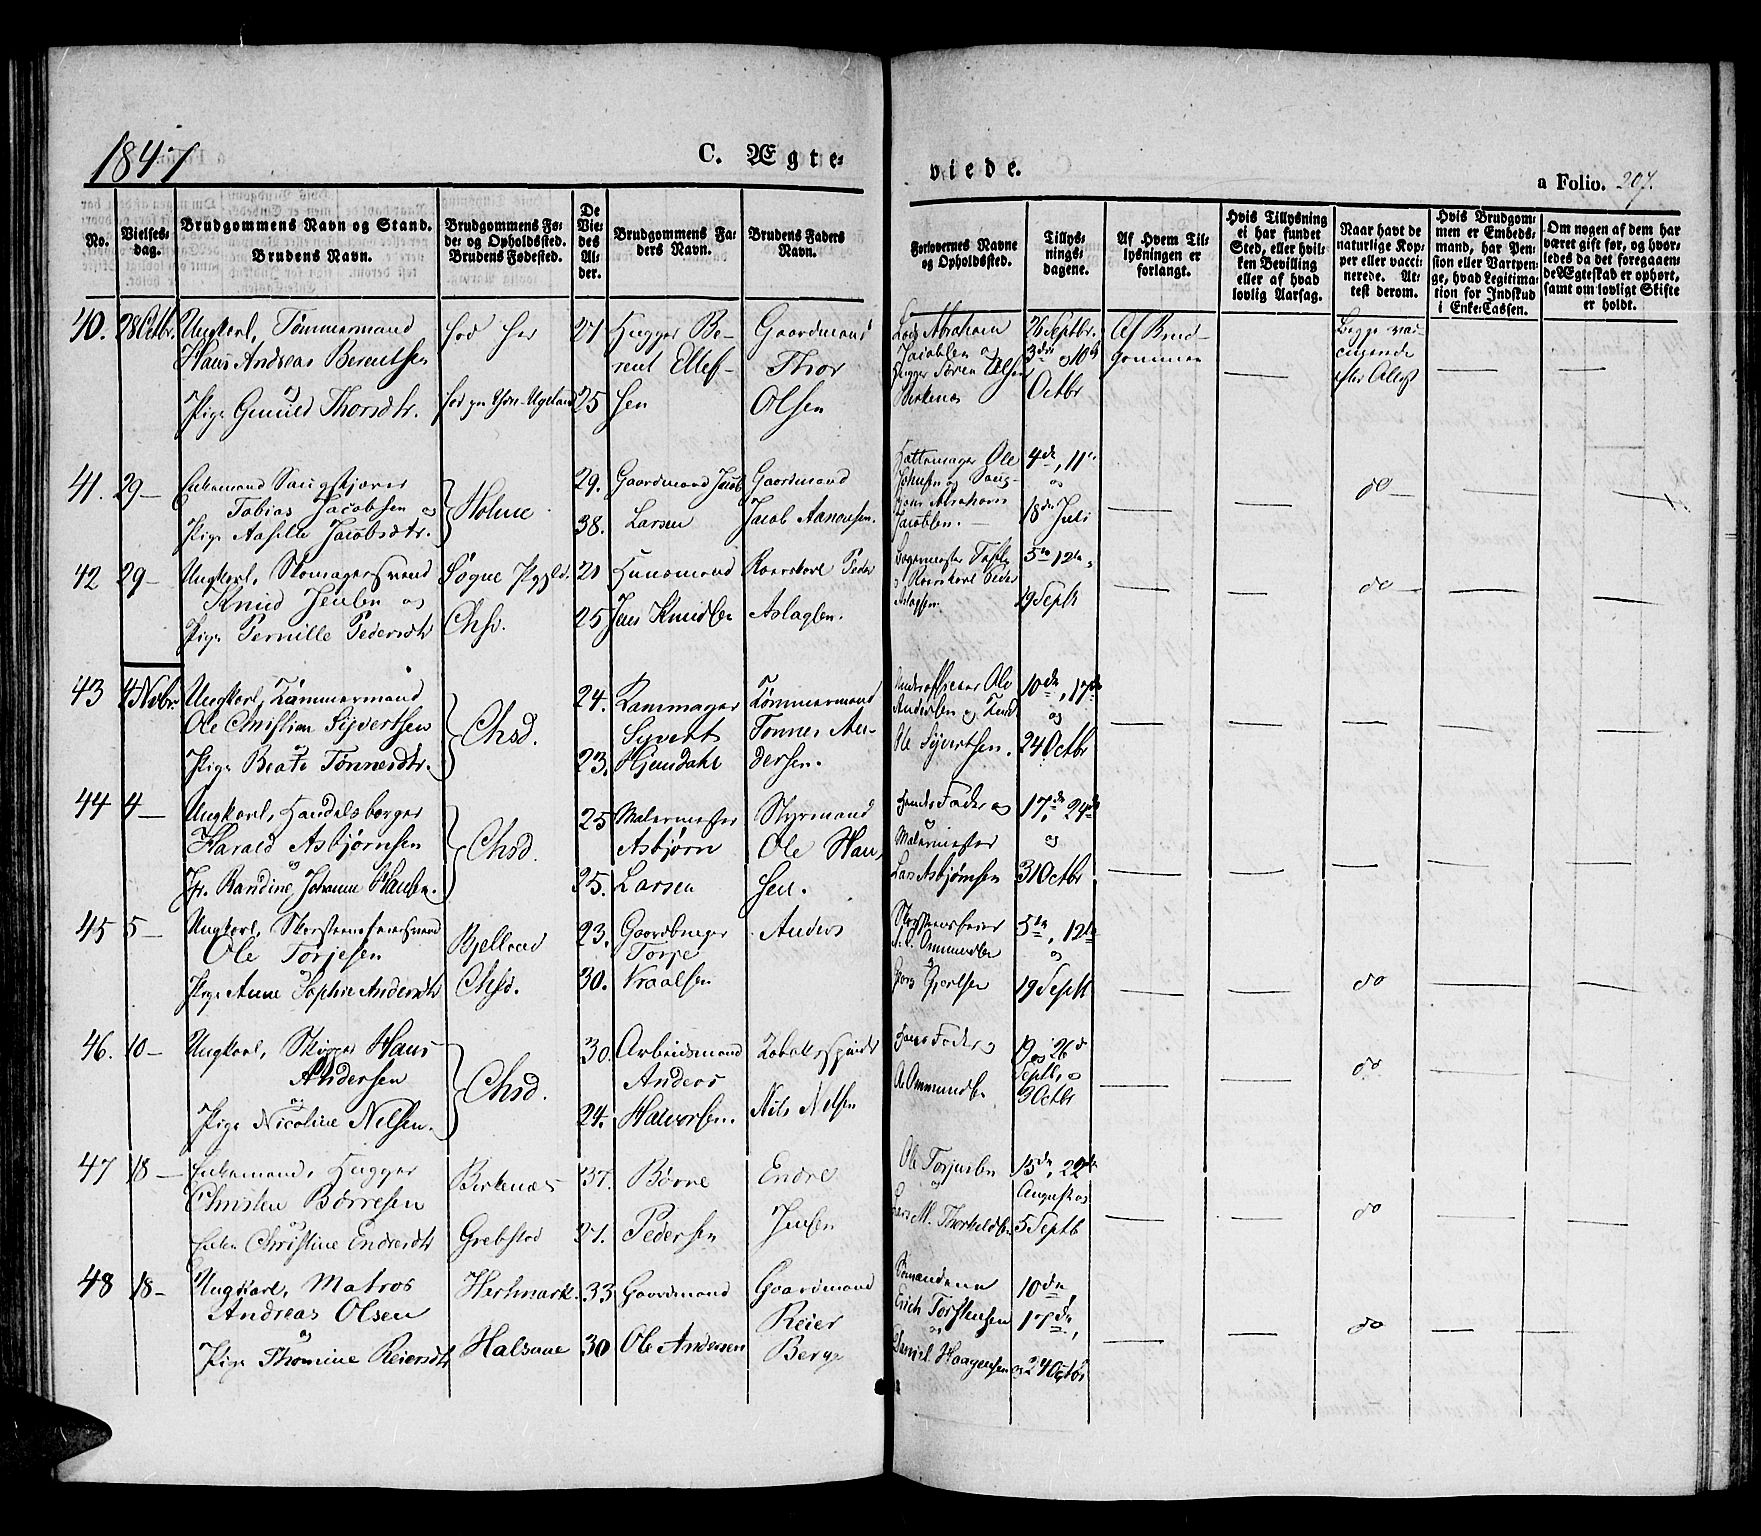 1847
C. Ægte-
viede.
a Folio. 207.
No.
Vielses-
dag.
Brudgommens Navn og Stand.
Brudens Navn.
Brudgommens Fø-
de- og Opholdssted.
Brudens Fødested.
De
Vie-
des
Al-
der.
Brudgommens Fa-
ders Navn.
Brudens Faders
Navn.
Forlovernes Navne
og Opholdssted.
Tillys-
nings-
dagene.
Af Hvem Til-
lysningen er
forlangt.
Hvis Tillysning
ei har fundet
Sted, eller hvil-
ken Bevilling
eller af hvad
lovlig Aarsag.
Naar havt de
naturlige Kop-
per eller vacci-
nerede. At-
test derom.
Hvis Brudgom-
men er Embeds-
mand, har Pen-
sion eller Vartpen-
ge, hvad Legitima-
tion for Indskud
i Enke-Cassen.
Om nogen af dem har
været gift før, og hvor-
ledes da det foregaaen-
de Ægteskab er ophørt,
samt om lovligt Skifte
er holdt.
40. 28 Octbr. Ungkarl, Tømmermand
Hans Andreas Berentsen
og
Pige Gunild Thorsdtr.
fød her
fød paa Ydre-Ugeland
27
25
Hugger Be-
rent Ellef-
sen
Gaardmand
Thor
Olsen
Lods Abraham
Jacobsen og
Hugger Søren Olsen
Birkenæs
26 Septbr.
3die og 10de
Octbr
Af Brud-
gommen
Begge vac-
cinerede
efter Attest
41. 29 – Enkemand
Tobias Jacobsen og
Pige Aasille Jacobsdtr.
Holme
29.
38.
Gaardmand Jacob
Larsen
Gaardmand
Jacob Aanonsen.
Hattemager Ole
Johnsen og
Abraham
Jacobsen.
4de, 11te
og
18de Juli
do
42 29 – Ungkarl, Skomagersvend
Knud Jensen og
Pige Pernille Pedersdtr
Søgne
Chsd.
21
25
Huusmand
Jens Knudsen
Peder
Aslagsen.
Bagermester
Peder
Aslagsen
5te 12te
19 Septb
do
43 4 Novbr. Ungkarl, Tømmermand
Ole Christian Sijvertsen
og
Pige Beate Tønnesdtr.
Chsd.
24.
23.
Kammager
Syvert
Hjemdahl
Tømmermand
Tønnes An-
dersen.
Underofficeer Ole
Andersen og
Ole Sijvertsen.
10de, 17de
og
24 Octbr
44 4 – Ungkarl, Handelsborger
Harald Asbjørnsen
og
Jfr. Randine Johanne Hansen.
Chsd.
25
25.
Malermester
Asbjørn
Larsen
Styrmand
Ole Han-
sen.
Hendes Fader og
Malermester
Lars Asbjørnsen
17de, 24de
og
31 Octbr
45 5 – Ungkarl, Skorsteensfeiersvend
Ole Torjesen
Pige Anne Sophie Andersdtr
Bjelland
Chsd.
23.
30.
Gaardbruger
Torje
Vraalsen
Anders
Skorsteensfeier
A. Ommundsen
og
5te, 12te
og
19 Septb
do
46. 10 – Ungkarl, Skipper Hans
Andersen
og
Pige Nicoline Nilsen.
Chsd.
30.
24.
Arbeidsmand
Anders
Halvorsen.
Tobakspinder
Nils Nilsen
Hans Fader og
A. Ommundsen
19 og 26de
Septb. og
3 Octbr
do
47 18 – Enkemand, Hugger
Christen Børresen
og
Enke Christine Endresdtr
Birkenæs
Grebstad
37.
27.
Børre
Pedersen
Endre
Jensen
Ole Torjusen
og
Lars M. Thorkildsen
15de, 22de
August og
5 Septb
do
48 18 – Ungkarl, Matros
Andreas Olsen
og
Pige Thomine Reiersdtr
Hertmark.
Halsaae
33
30
Gaardmand
Ole Andersen
Gaardmand
Reier
Berge
Sømændene
Erich Torstensen
og
Daniel Haagensen
10de,
17de,
og 24 Octbr
do